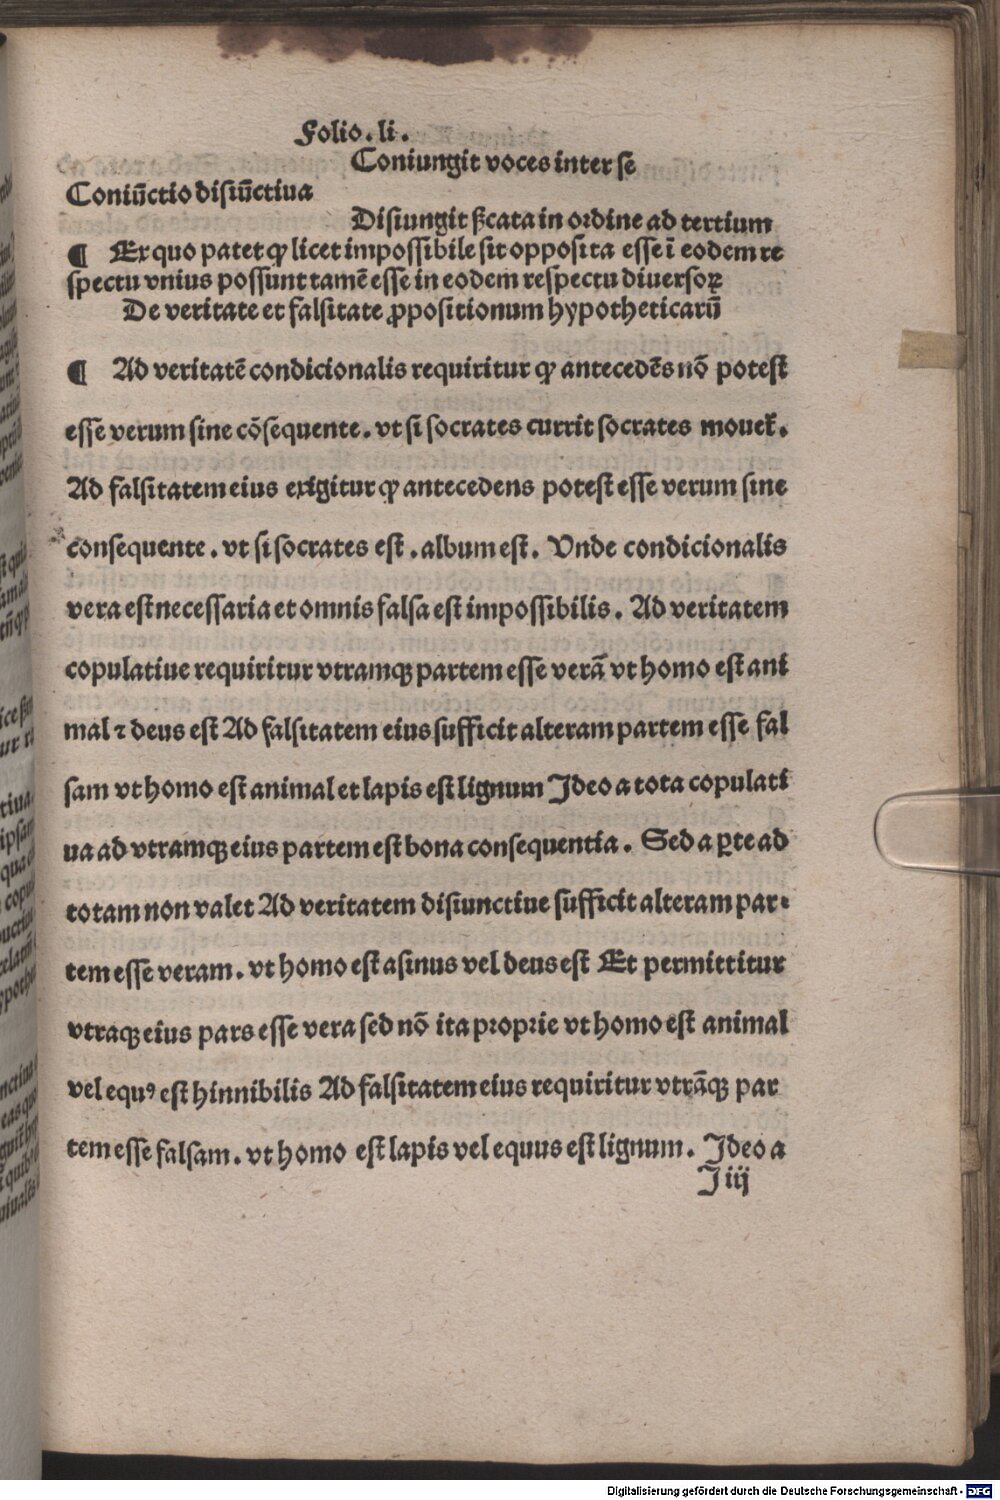 Folio.li.
Coniungit voces inter se
Coniūctio disiūctiua
Disiungit ẞcata in ordine ad tertium
¶ Ex quo patet ꝙ licet impossibile sit opposita esse ī eodem re
spectu vnius possunt tamē esse in eodem respectu diuersoꝝ
De veritate et falsitate ꝓpositionum hypotheticarū
¶ Ad veritatē condicionalis requiritur ꝙ antecedēs nō potest
esse verum sine cōsequente. vt si socrates currit socrates mouet᷑.
Ad falsitatem eius exigitur ꝙ antecedens potest esse verum sine
consequente. vt si socrates est. album est. Vnde condicionalis
vera est necessaria et omnis falsa est impossibilis. Ad veritatem
copulatiue requiritur vtramqꝫ partem esse verā vt homo est ani
mal ⁊ deus est Ad falsitatem eius sufficit alteram partem esse fal
sam vt homo est animal et lapis est lignum Ideo a tota copulati
ua ad vtramqꝫ eius partem est bona consequentia. Sed a ꝑte ad
totam non valet Ad veritatem disiunctiue sufficit alteram par⸗
tem esse veram. vt homo est asinus vel deus est Et permittitur
vtraqꝫ eius pars esse vera sed nō ita proprie vt homo est animal
vel equꝰ est hinnibilis Ad falsitatem eius requiritur vtrāqꝫ par
tem esse falsam. vt homo est lapis vel equus est lignum. Ideo a
I iij
Digitalisierung gefördert durch die Deutsche Forschungsgemeinschaft - DFG